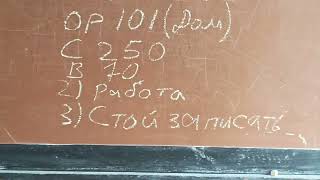 ОР 101 (Дом)
С 250
В 70
2) Работа
3) Стой записать